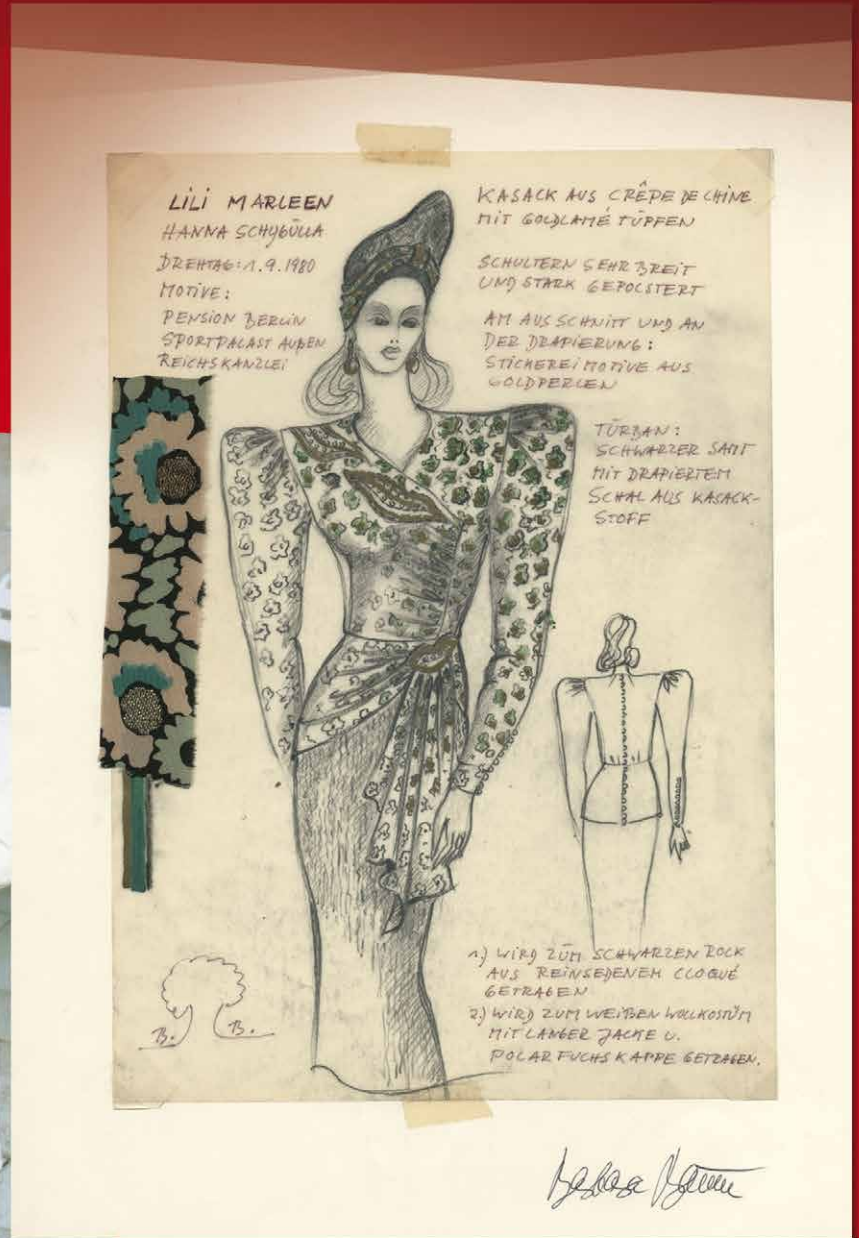 LILI MARLEEN
HANNA SCHYGÜLLA
DREHTAG: 1.9.1980
MOTIVE:
PENSION BERLIN
SPORTPALAST AUßEN
REICHSKANZLEI
KASACK AUS CRÊPE DE CHINE
MIT GOLDLAMÉ TÜPFEN
SCHULTERN SEHR BREIT
UND STARK GEPOLSTERT
AM AUSSCHNITT UND AN
DER DRAPIERUNG:
STICKEREIMOTIVE AUS
GOLDPERLEN
TURBAN:
SCHWARZER SAMT
MIT DRAPIERTEM
SCHAL AUS KASACK-
STOFF
1.) WIRD ZUM SCHWARZEN ROCK
AUS REINSEIDENEM CLOQUÉ
GETRAGEN
2.) WIRD ZUM WEIßEN WOLLKOSTÜM
MIT LANGER JACKE U.
POLARFUCHSKAPPE GETRAGEN.
B. B.
Barbara Baum